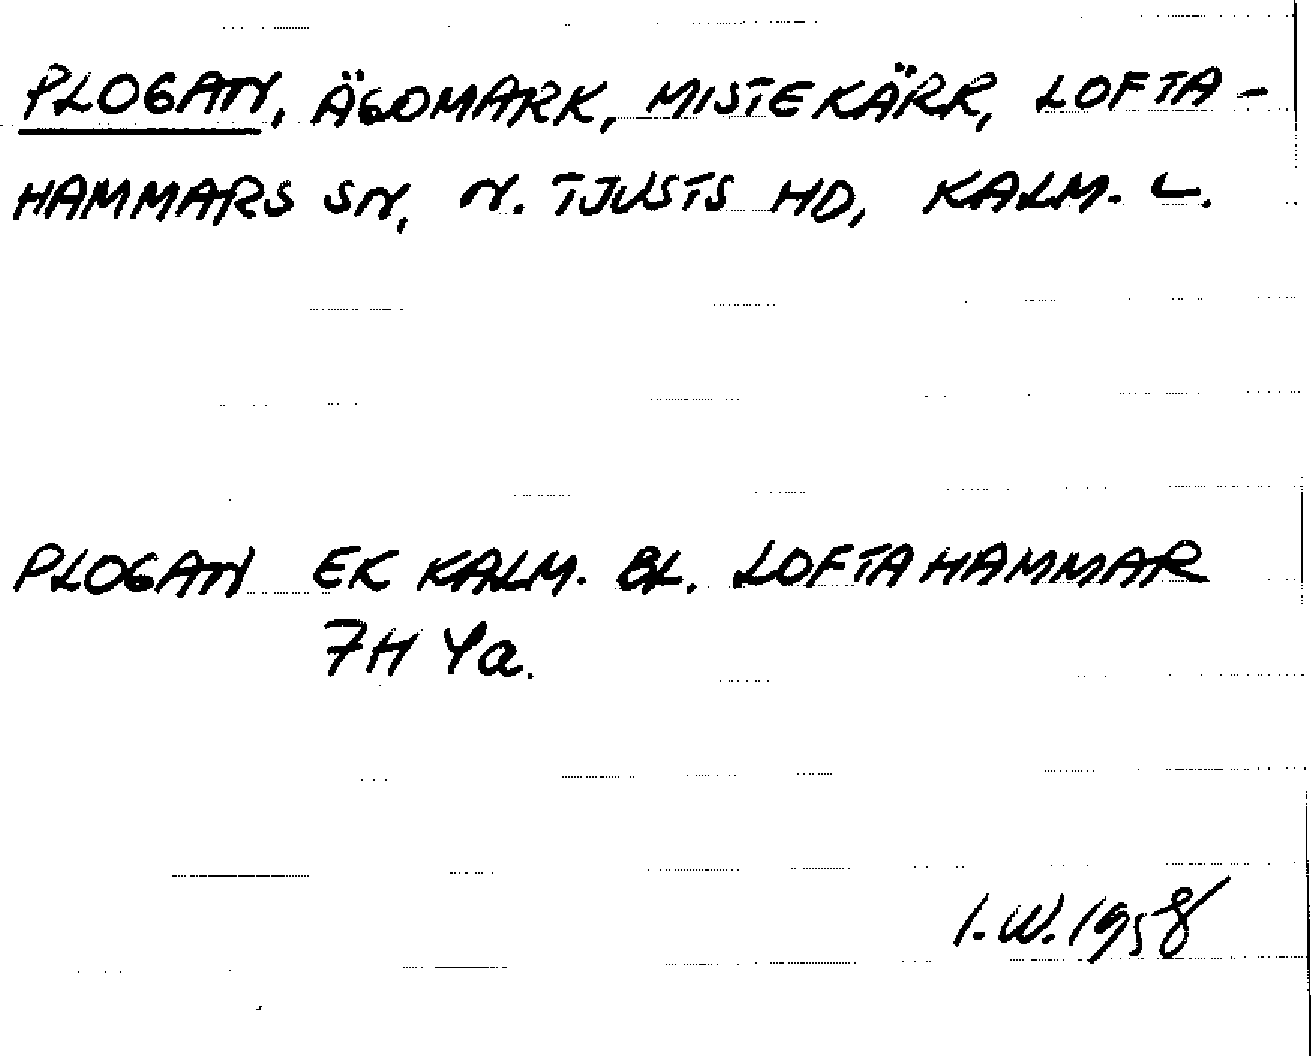 PLOGAN, ÄGOMARK, MISTEKÄRR, LOFTA-
HAMMARS SN, N. TJUSTS HD, KALM. L.
PLOGAN EK KALM. BL. LOFTAHAMMAR
7H Ya.
I.W. 1958